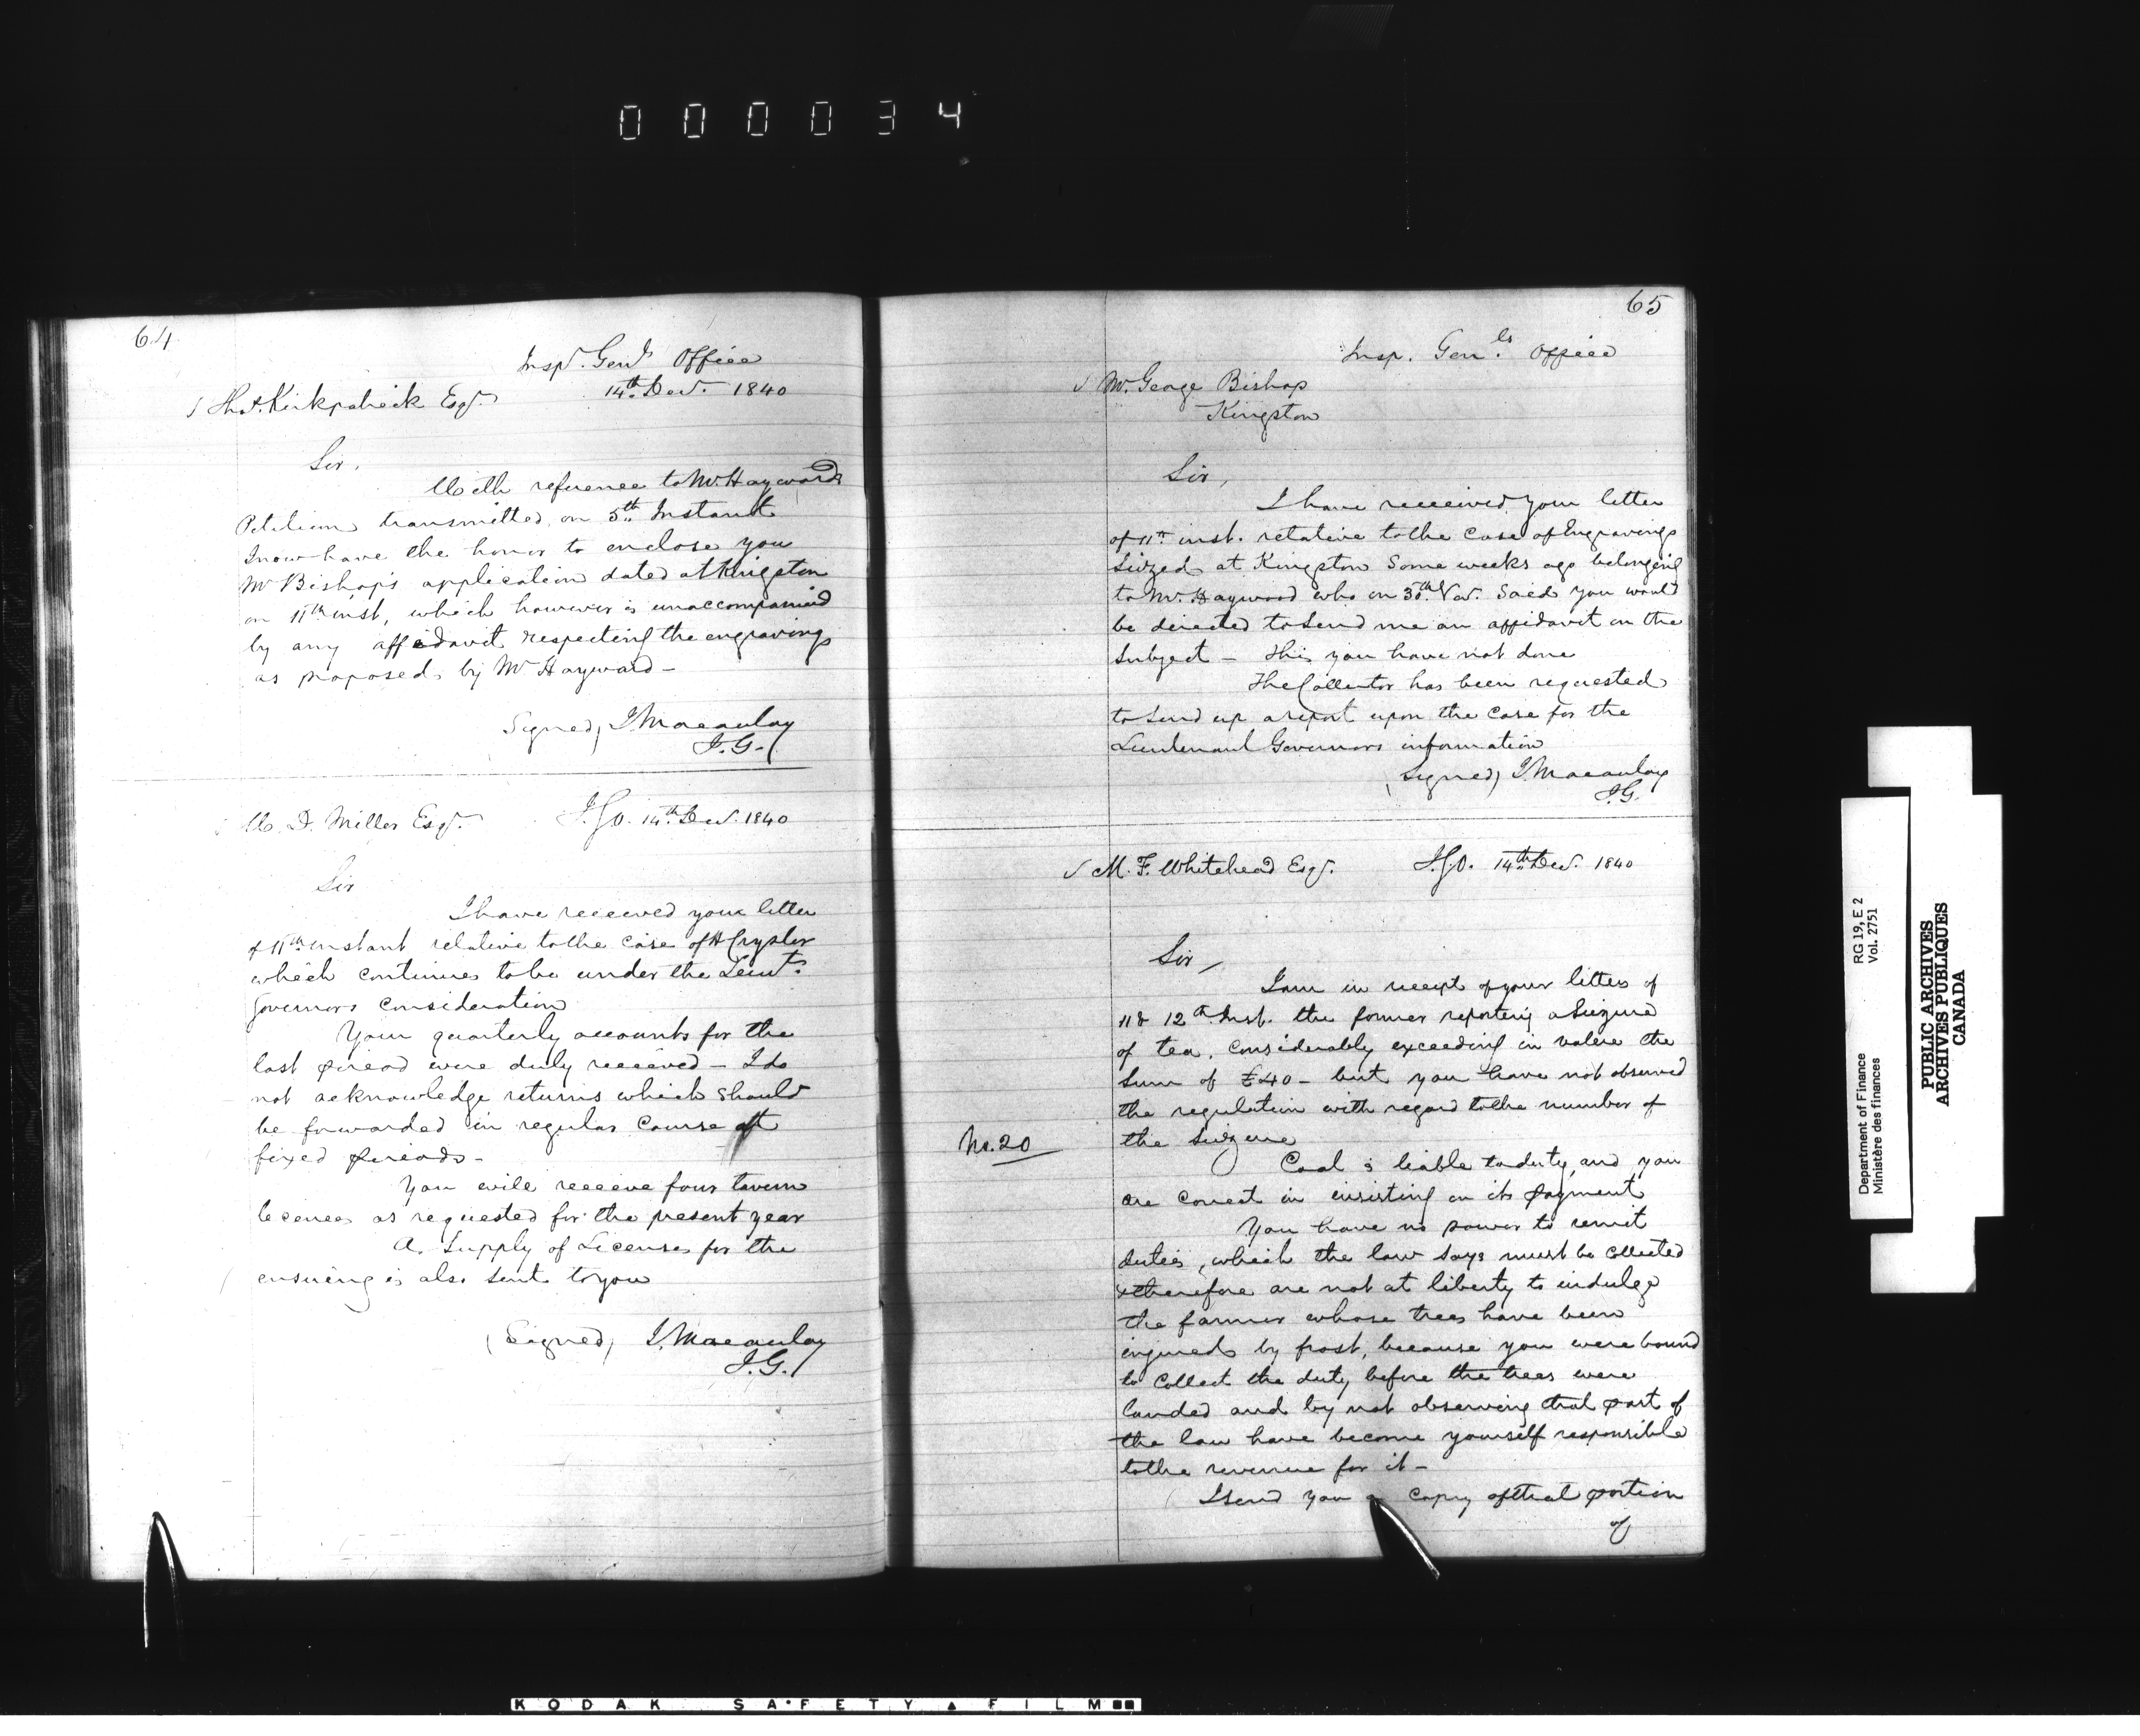 000034
64
Insp.r Gen.ls Office
14th Decr. 1840
Thos. Kirkpatrick Esqr.
Sir,
With reference to Mr. Haywards
Petition transmitted on 5th Instant
I now have the honor to enclose you
Mr Bishop's application dated at Kingston
on 11th inst, which however is unaccompanied
by any affidavit respecting the engravings
as proposed by Mr Hayward –
Signed, J Macaulay
I.G.
W. D. Miller Esqr. I.G.O. 14th Decr. 1840
Sir
I have received your letter
of 11th instant relative to the case of H Crysler
which continues to be under the Lieut.
Governors consideration
Your quarterly accounts for the
last period were duly received – I do
not acknowledge returns which should
be forwarded in regular course at
fixed periods –
You will receive four tavern
licences as requested for the present year
A Supply of Licenses for the
ensuing is also sent to you
(Signed) J. Macaulay
I.G.
65
Insp. Gen.ls Office
Mr. George Bishop
Kingston
Sir,
I have received your letter
of 11th inst. relative to the Case of Engravings
Seized at Kingston Some weeks ago belonging
to Mr. Haywood who on 30th Nov. Said you would
be directed to send me an affidavit on the
Subject – this you have not done
The Collector has been requested
to send up a report upon the case for the
Lieutenant Governors information
(Signed) J. Macaulay
I.G.
M. F. Whitehead Esqr. I.G.O. 14th Decr. 1840
Sir,
I am in receipt of your letters of
11 & 12th Inst. the former reporting a Seizure
of tea, considerably exceeding in value the
Sum of £40 – but you have not observed
the regulation with regard to the number of
the Seizure
No. 20
Coal is liable to duty, and you
are correct in insisting on its payment
You have no power to remit
duties, which the law says must be collected
& therefore are not at liberty to indulge
the farmer whose trees have been
injured by frost, because you were bound
to collect the duty before the trees were
landed and by not observing that part of
the law have become yourself responsible
to the revenue for it –
I send you a copy of that portion
of
Department of Finance
Ministère des finances
RG 19, E 2
Vol. 2751
PUBLIC ARCHIVES
ARCHIVES PUBLIQUES
CANADA
KODAK SAFETY FILM